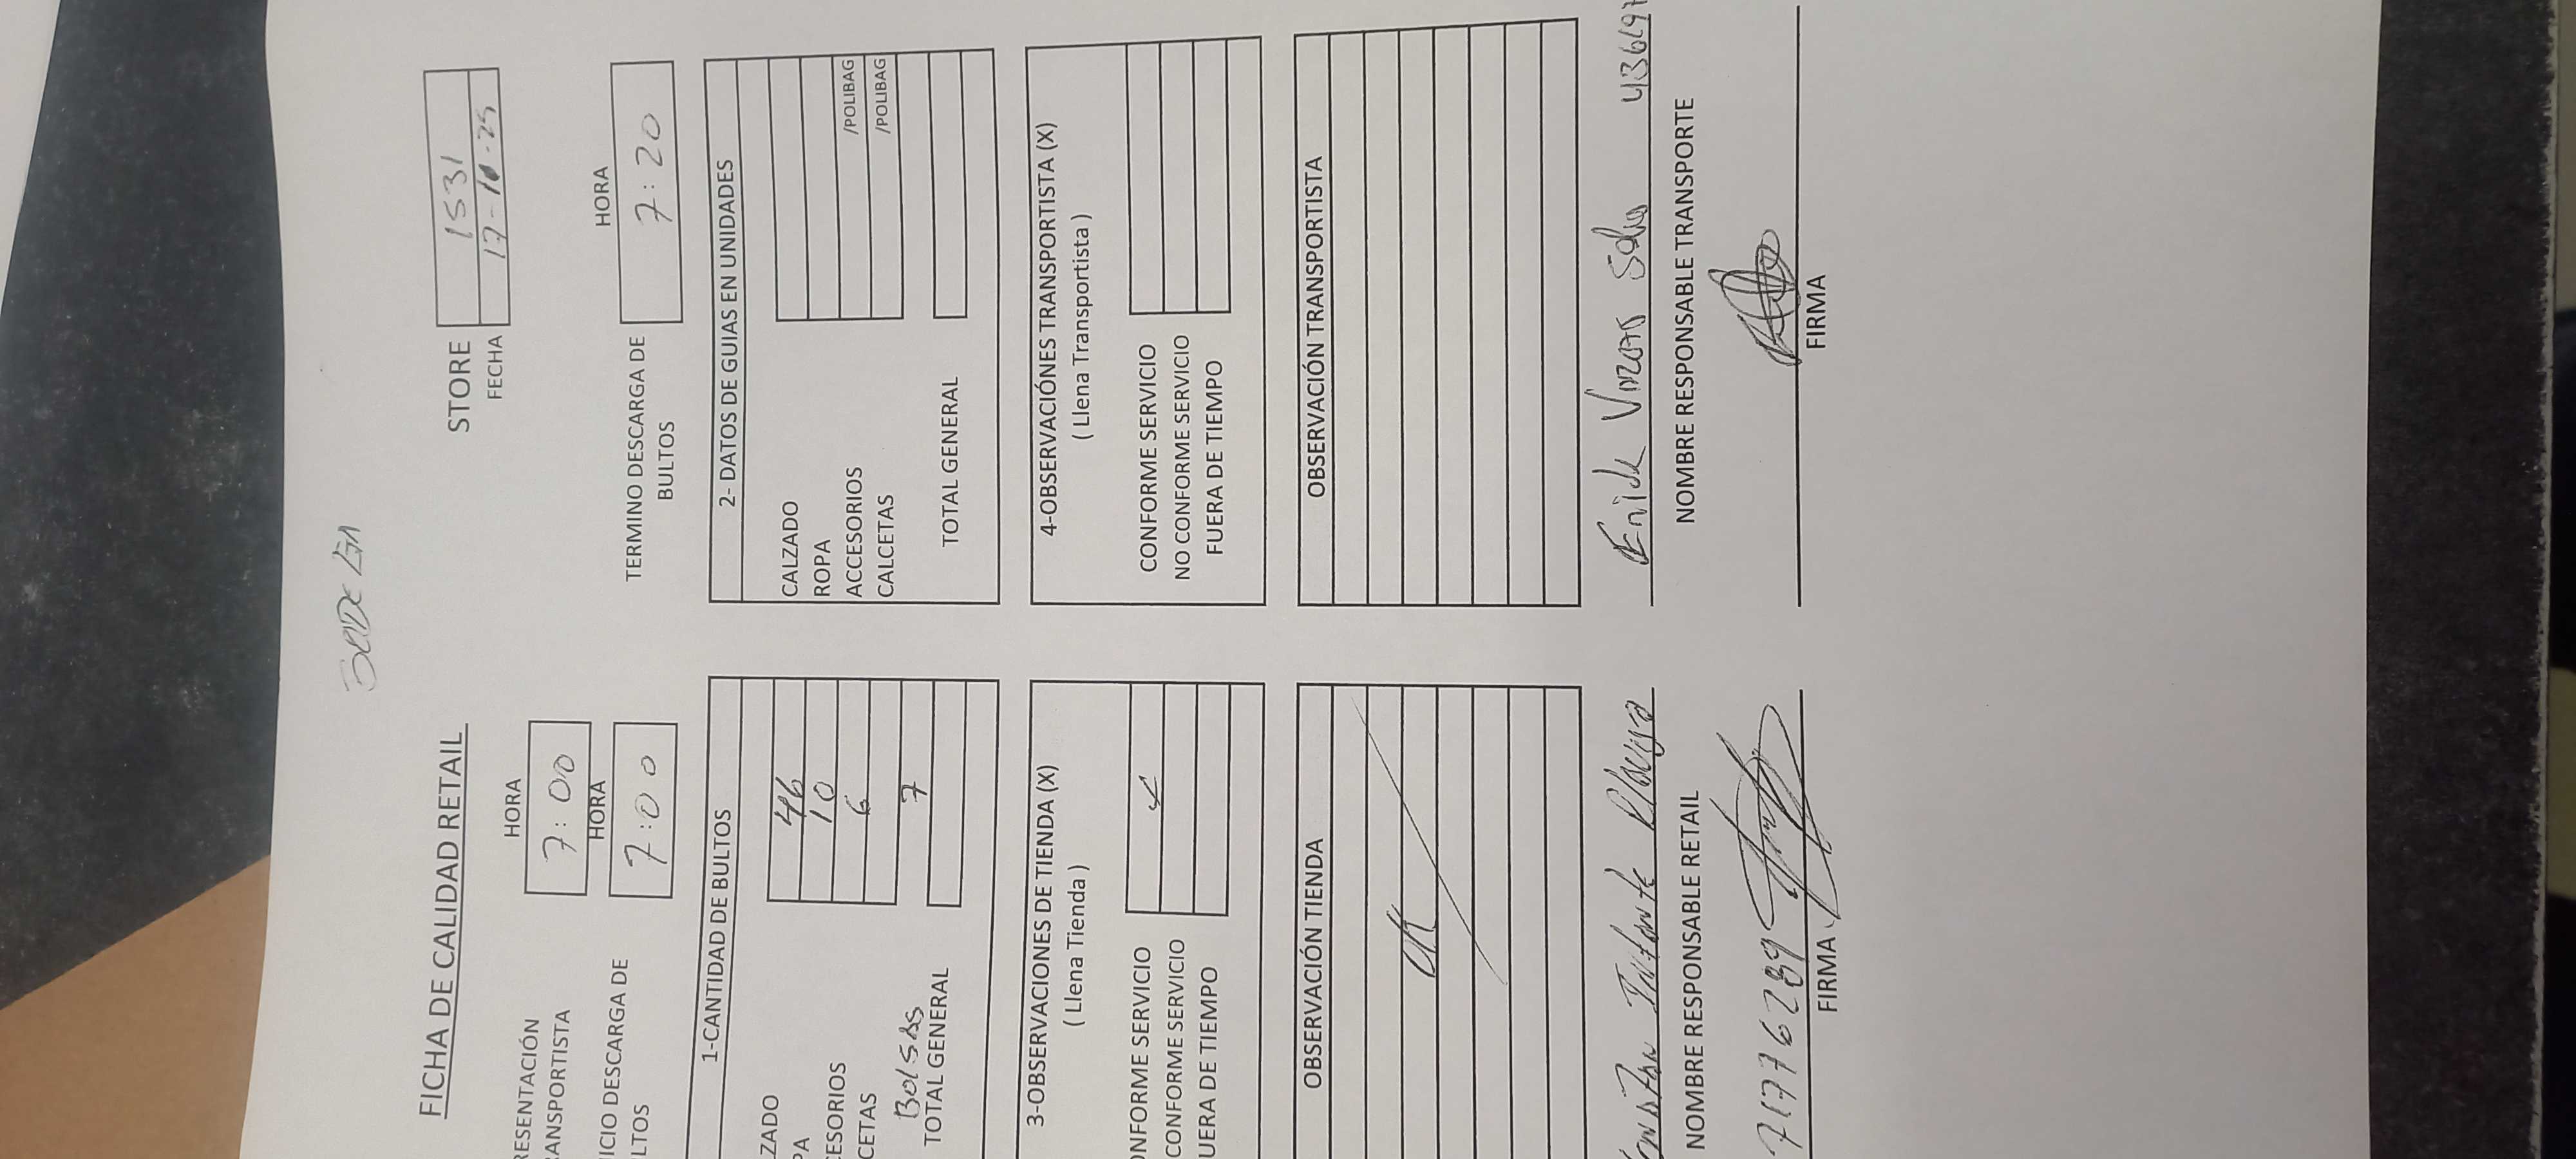 FICHA DE CALIDAD RETAIL
STORE 1531
FECHA 17-10-25
HORA
RESENTACIÓN
RANSPORTISTA 7:00
HORA
ICIO DESCARGA DE
LTOS 7:00
HORA
TERMINO DESCARGA DE
BULTOS 7:20
1-CANTIDAD DE BULTOS
ZADO 46
PA 10
ESORIOS 6
CETAS
Bolsas 7
TOTAL GENERAL
2- DATOS DE GUIAS EN UNIDADES
CALZADO
ROPA
ACCESORIOS /POLIBAG
CALCETAS /POLIBAG
TOTAL GENERAL
3-OBSERVACIONES DE TIENDA (X)
( Llena Tienda )
ONFORME SERVICIO X
CONFORME SERVICIO
UERA DE TIEMPO
4-OBSERVACIÓNES TRANSPORTISTA (X)
( Llena Transportista )
CONFORME SERVICIO
NO CONFORME SERVICIO
FUERA DE TIEMPO
OBSERVACIÓN TIENDA
OK
OBSERVACIÓN TRANSPORTISTA
NOMBRE RESPONSABLE RETAIL
71776289
FIRMA
43649
NOMBRE RESPONSABLE TRANSPORTE
FIRMA